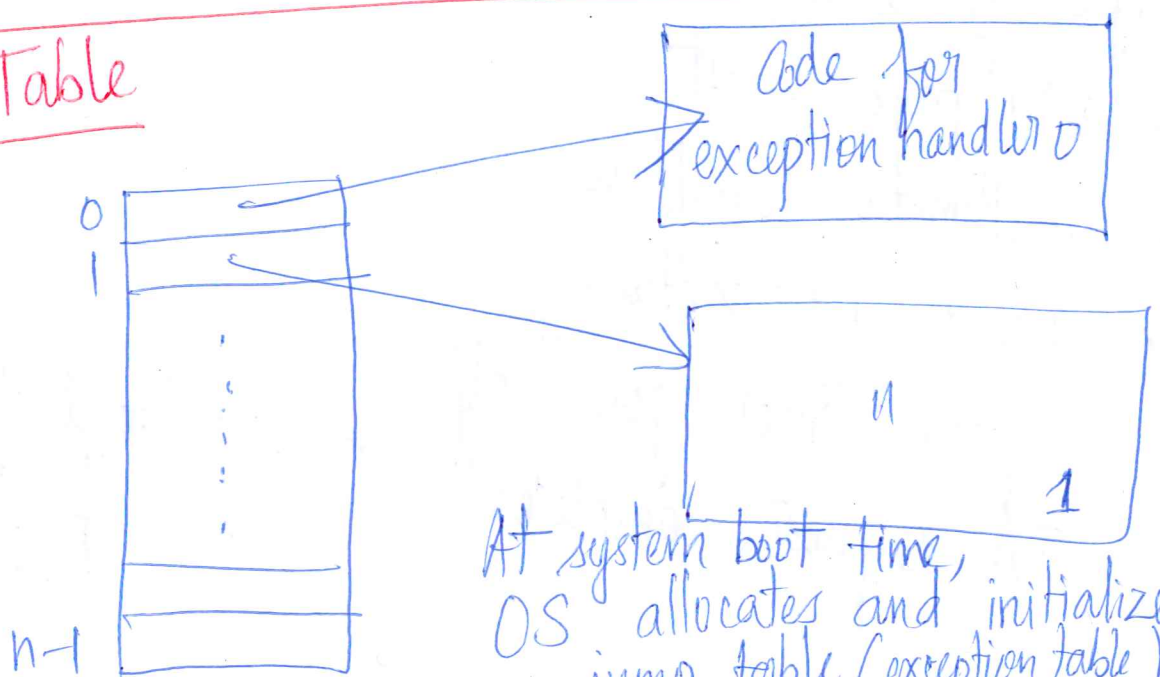 Table
Code for
exception handler 0
0
1
"
1
At system boot time,
OS allocates and initialize
jump table (exception table)
n-1